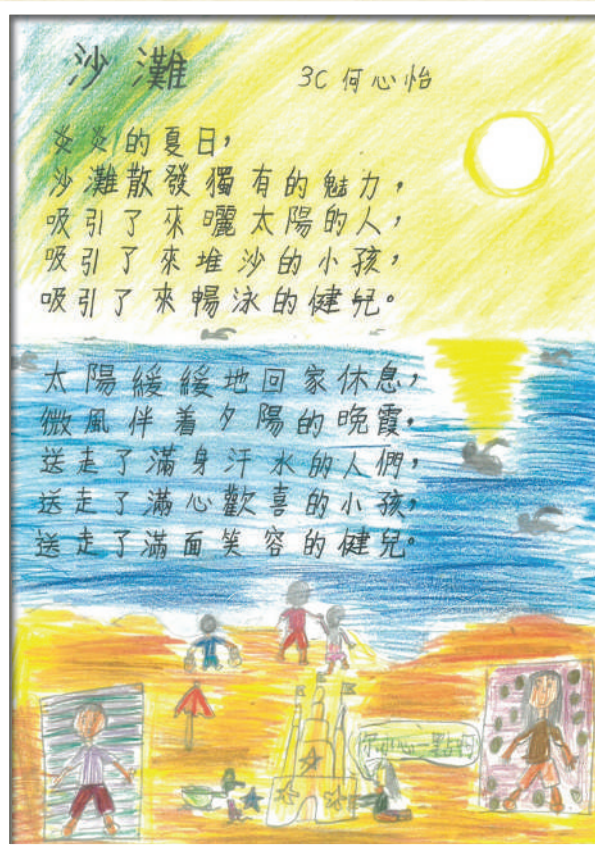 沙灘 3C 何心怡
炎炎的夏日，
沙灘散發獨有的魅力，
吸引了來曬太陽的人，
吸引了來堆沙的小孩，
吸引了來暢泳的健兒。
太陽緩緩地回家休息，
微風伴着夕陽的晚霞。
送走了滿身汗水的人們，
送走了滿心歡喜的小孩，
送走了滿面笑容的健兒。
你小心一點的